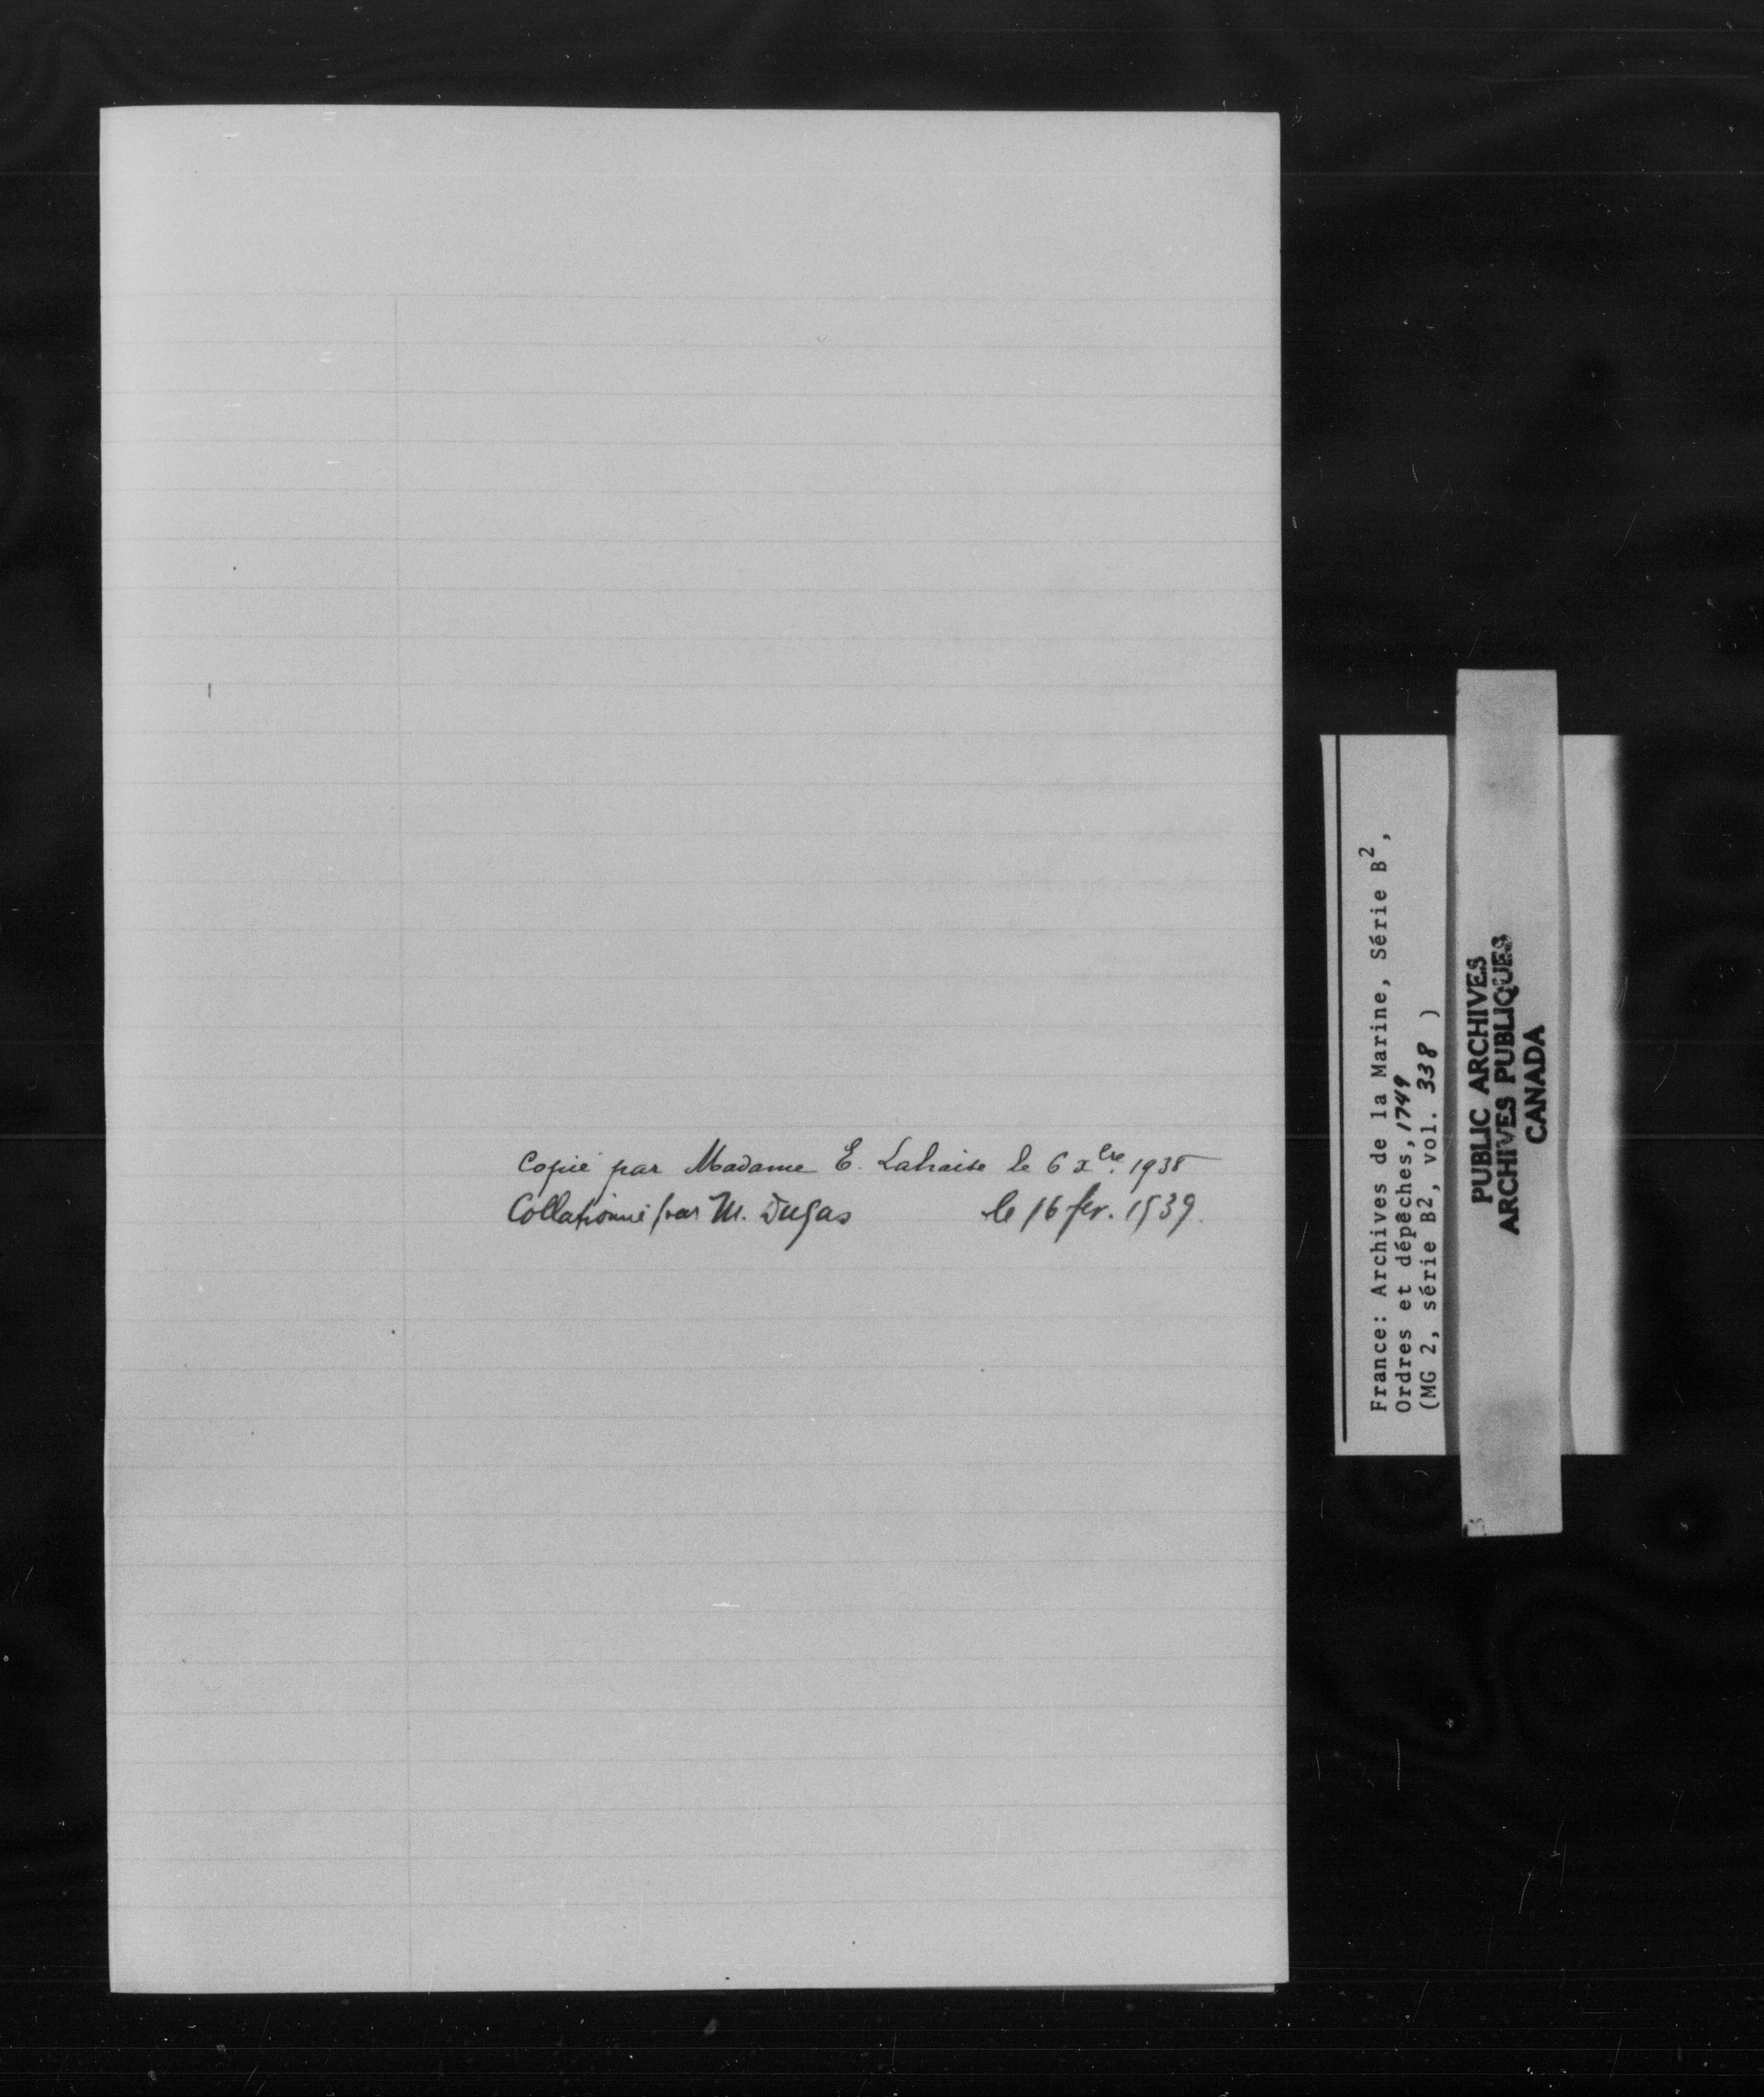 Copié par Madame E. Lahaise le 6 xbre. 1938
Collationné par M. Dugas le 16 fev. 1939.
France: Archives de la Marine, Série B2,
Ordres et dépêches, 1749
(MG 2, série B2, vol. 338 )
PUBLIC ARCHIVES
ARCHIVES PUBLIQUES
CANADA